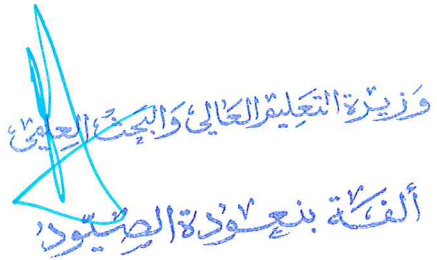 وَزيرة التعليم العَالي وَالبَحث العِلمي
ألفة بنعودة الصيود